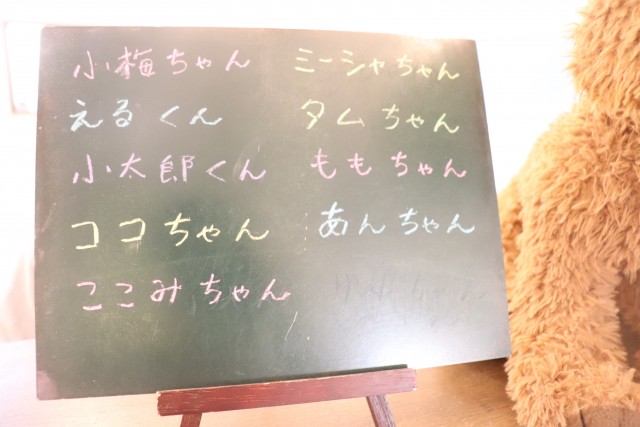 小梅ちゃん
えるくん
小太郎くん
ココちゃん
ここみちゃん
ミーシャちゃん
タムちゃん
ももちゃん
あんちゃん